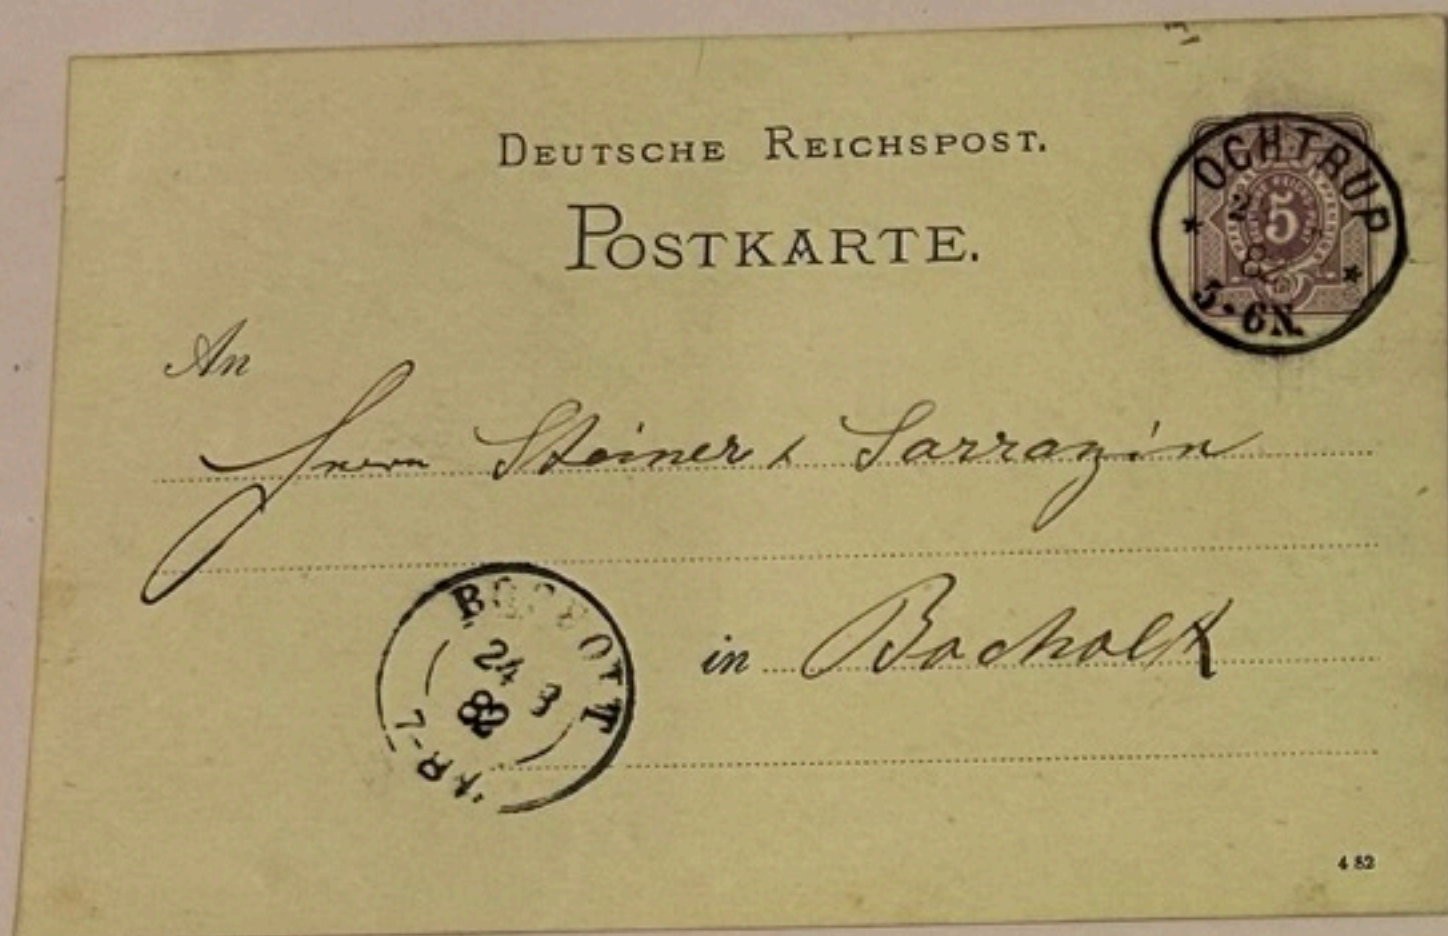 DEUTSCHE REICHSPOST.
POSTKARTE.
OCHTRUP
5
5-6N.
An
Herrn Steiner & Sarrazin
in Bocholt
24 8
82
4 82